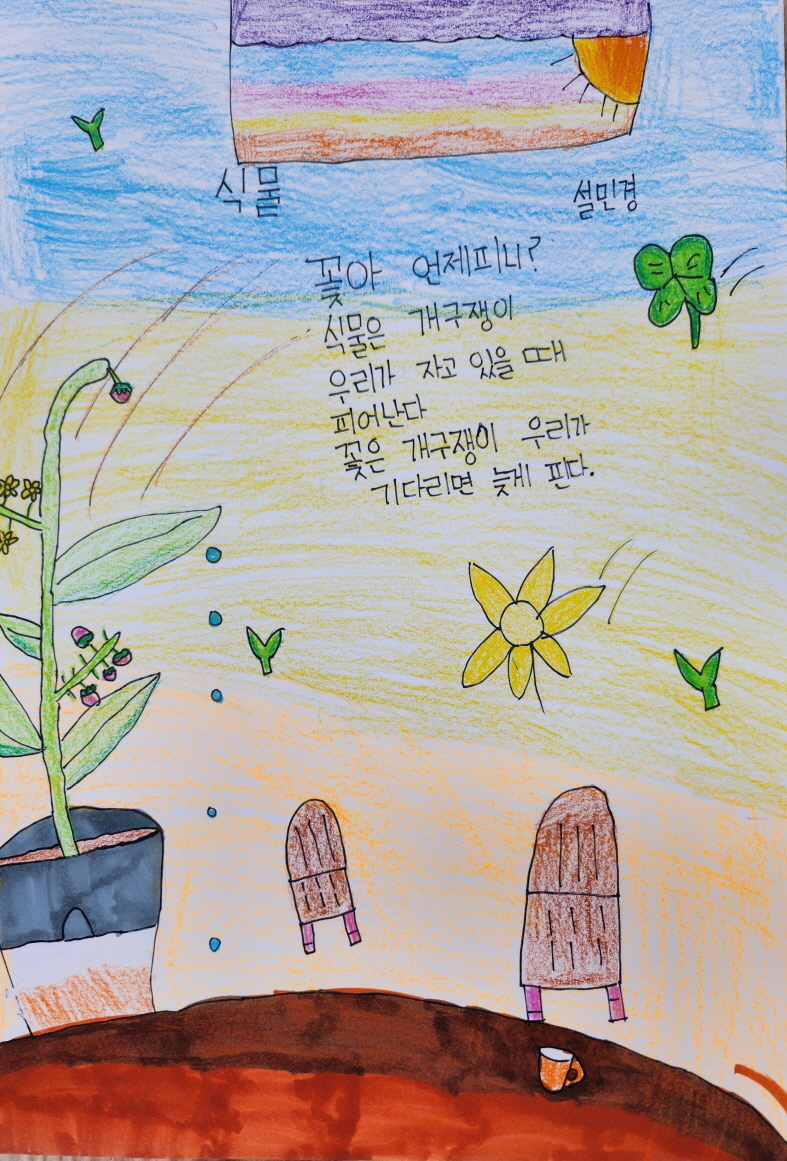 식물
설민경
꽃아 언제피니?
식물은 개구쟁이
우리가 자고 있을 때
피어난다
꽃은 개구쟁이 우리가
기다리면 늦게 핀다.